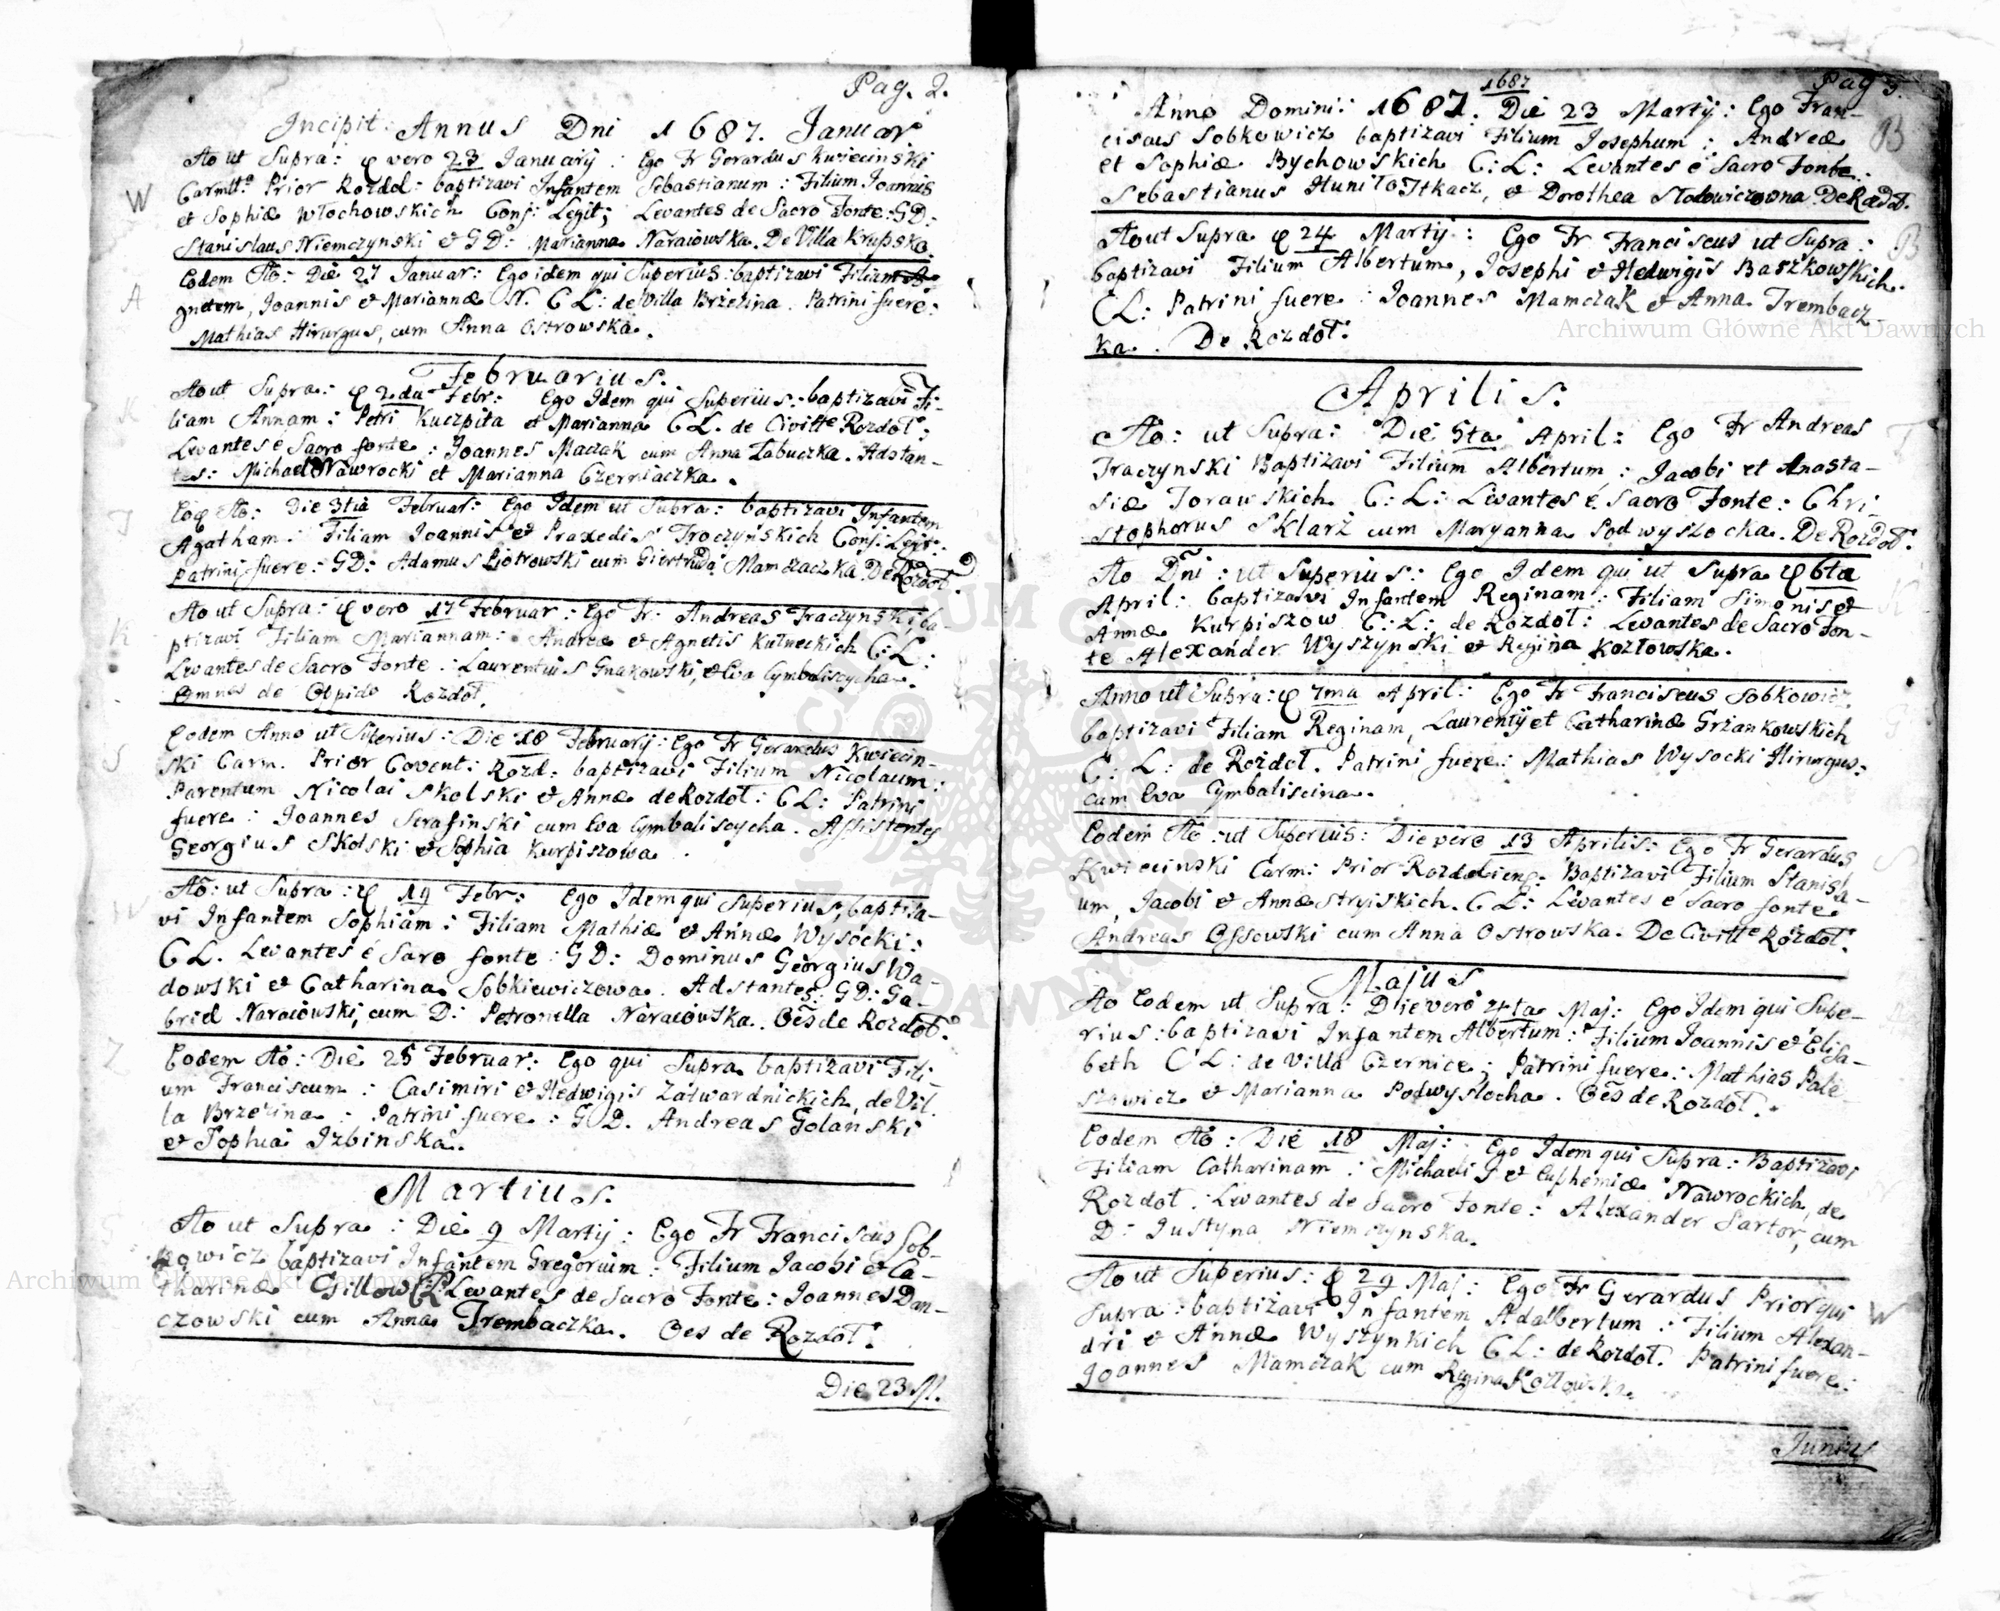 Pag. 2.
Incipit Annus Dni 1687. Januar
Ao ut Supra: φ vero 23 Januarij: Ego Fr Gerardus Kwiecinski
W Carmtt: Prior Rozdol: baptizavi Infantem Sebastianum: Filium Joannis
et Sophiæ Włochowskich Conj: Legit; Levantes de Sacro Fonte: GD:
Stanislaus Niemczynski et GD: Marianna Naraiowska. De Villa Krupsko.
Eodem Ao: Die 27 Januar: Ego idem qui Superius: baptizavi Filiam A-
A gnetem, Joannis et Mariannæ N. C L: de Villa Brzezina. Patrini fuere:
Mathias Hirurgus, cum Anna Ostrowska.
Februarius.
Ao ut Supra: φ 2da Febr: Ego Idem qui Superius: baptizavi Fi-
K liam Annam: Petri Kuczpita et Marianna C L. de Civitte Rozdoł:
Levantes é Sacro fonte: Joannes Maczak cum Anna Łabuczka. Adstan-
tes: Michael Nawrocki et Marianna Czerniaczka.
Eoφ Ao: Die 3tia Februar: Ego Idem ut Supra: baptizavi Infantem
T Agatham: Filiam Joannis et Praxedis Troczynskich Conj: Legit:
Patrini fuere: GD: Adamus Piotrowski cum Giertruda Mamczaczka De Rozdoł.
Ao ut Supra: φ vero 17 Februar: Ego Fr: Andreas Traczynski, ba-
K ptizavi Filiam Mariannam: Andreæ et Agnetis Kulneckich C: L:
Levantes de Sacro Fonte: Laurentius Gnakowski, et Eva Cymbaliscycha.
Omnes de Oppido Rozdoł.
Eodem Anno ut Superius: Die 18 Februarij: Ego Fr Gerardus Kwiecin-
S ski Carm. Prior Covent: Rozd: baptizavi Filium Nicolaum:
Parentum Nicolai Skolski et Annæ de Rozdoł: C L: Patrini
fuere: Joannes Serafinski cum Eva Cymbaliscycha. Assistentes
Georgius Skolski et Sophia Kurpiszowa.
Ao: ut Supra: φ 19 Febr: Ego Idem qui Superius, baptiza-
W vi Infantem Sophiam: Filiam Mathiæ et Annæ Wysocki:
C L. Levantes é Saro fonte: GD: Dominus Georgius Wa-
dowski et Catharina Sobkiewiczowa. Adstantes: GD: Ga-
briel Naraiowski, cum D: Petronella Naraiowska. Oēs de Rozdoł.
Eodem Ao: Die 25 Februar: Ego qui Supra baptizavi Fili-
Z um Franciscum: Casimiri et Hedwigis Zatwardnickich, de Vil.
la Brzezina: Patrini fuere: G D. Andreas Golanski
et Sophia Izbinska.
Martius.
Ao ut Supra: Die 9 Martij: Ego Fr Franciscus Sob-
kowicz baptizavi Infantem Gregorium: Filium Jacobi et Ca-
tharinæ Gillow CL: Levantes de Sacro Fonte: Joannes Dan-
czowski cum Anna Trembaczka. Oes de Rozdoł.
Die 23 M.
1687
Pag 3.
Anno Domini: 1687. Die 23 Martij: Ego Fran-
ciscus Sobkowicz baptizavi Filium Josephum: Andreæ B
et Sophiæ Bychowskich C: L: Levantes é Sacro Fonte:
Sebastianus Huniło Tkacz, et Dorothea Słodowiczowna De Rozdoł.
Ao ut Supra φ 24 Martij: Ego Fr Franciscus ut Supra: B
baptizavi Filium Albertum, Josephi et Hedwigis Baszkowskich
C L: Patrini fuere: Joannes Mamczak et Anna Trembacz
ka. De Rozdoł:
Aprilis.
Ao: ut Supra: Die 5ta April: Ego Fr Andreas T
Traczynski Baptizavi Filium Albertum: Jacobi et Anasta-
siæ Torawskich C: L: Levantes é Sacro Fonte: Chri
stophorus Sklarz cum Maryanna Podwysłocha. De Rozdoł.
Ao Dni: ut Superius: Ego Idem qui ut Supra φ 6ta
April: baptizavi Infantem Reginam: Filiam Simonis et K
Annæ Kurpiszow C: L: de Rozdoł: Levantes de Sacro Fon-
te Alexander Wyszynski et Regina Kozłowska.
Anno ut Supra: φ 7ma April: Ego Fr Franciscus Sobkowicz
baptizavi Filiam Reginam, Laurentij et Catharinæ Grzankowskich
C: L: de Rozdoł. Patrini fuere: Mathias Wysocki Hirurgus:
cum Eva Cymbaliscina.
Eodem Ao: ut Superius: Die vero 13 Aprilis: Ego Fr Gerardus
Kwiecinski Carm: Prior Rozdoliens: Baptizavi Filium Stanisla- S
um, Jacobi et Annæ Stryiskich. C L: Levantes e Sacro fonte
Andreas Ossowski cum Anna Ostrowska. De Civitte Rozdoł.
Majus
Ao Eodem ut Supra: Die vero 4ta Maj: Ego Idem qui Supe-
rius: baptizavi Infantem Albertum: Filium Joannis et Elisa-
beth C L: de Villa Czernice; Patrini fuere: Mathias Pale-
szowicz et Marianna Podwysłocha. Oēs de Rozdoł.
Eodem Ao: Die 18 Maj: Ego Idem qui Supra: Baptizavi
Filiam Catharinam: Michaelis et Euphemiæ Nawrockich, de N
Rozdoł. Levantes de Sacro Fonte: Alexander Sartor, cum
D: Justyna Niemczynska.
Ao ut Superius: φ 29 Maj: Ego Fr Gerardus Prior qui
Supra: baptizavi Infantem Adalbertum: Filium Alexan- W
dri et Annæ Wyszynkich C L: de Rozdoł. Patrini fuere:
Joannes Mamczak cum Regina Kozłowska.
Junius
Archiwum Główne Akt Dawnych
Archiwum Główne Akt Dawnych
ARCHIWUM GŁÓWNE AKT DAWNYCH